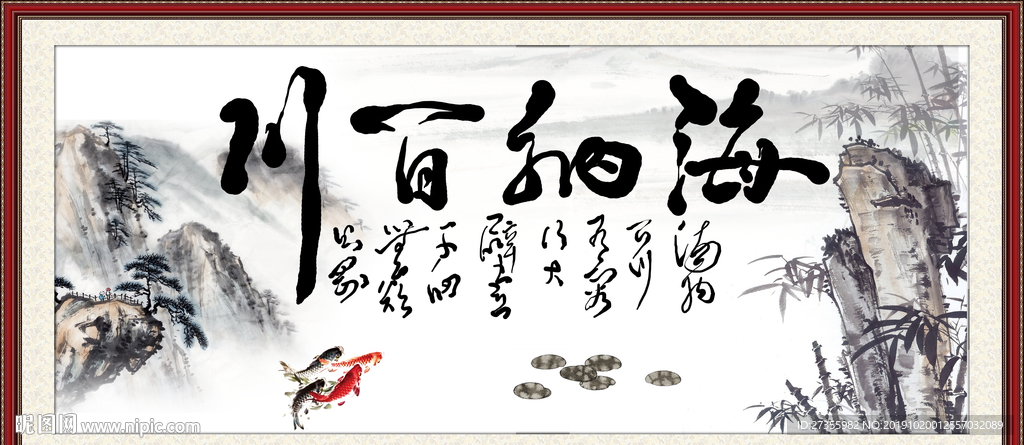 海纳百川
海纳
百川
有容
乃大
壁立
千仞
無欲
則剛
昵图网 www.nipic.com
ID:27355982 NO:20191020012557032089